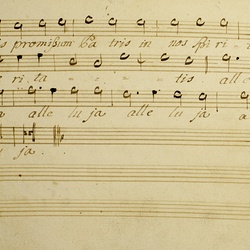 s promißum Pa tris in nos Spi ri
ri ta - - - - tis alle
a alle lu ja alle lu ja a
ja.